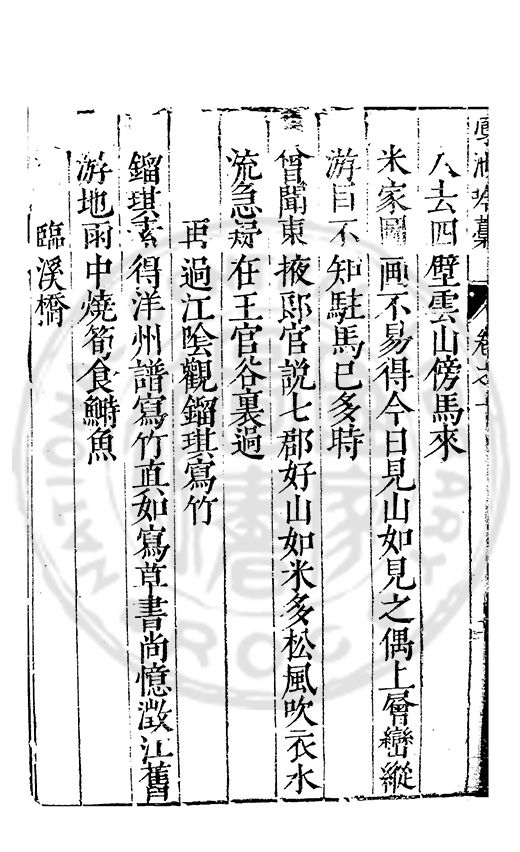 人去四壁雲山傍馬來
米家圖畫不易得今日見山如見之偶上層巒縱
游目不知駐馬已多時
曾聞東掖郎官說七郡好山如米多松風吹衣水
流急疑在王官谷裏過
再過江陰觀鎦琪寫竹
鎦琪素得洋州譜寫竹真如寫草書尚憶澂江舊
游地雨中燒筍食鰣魚
臨溪橋